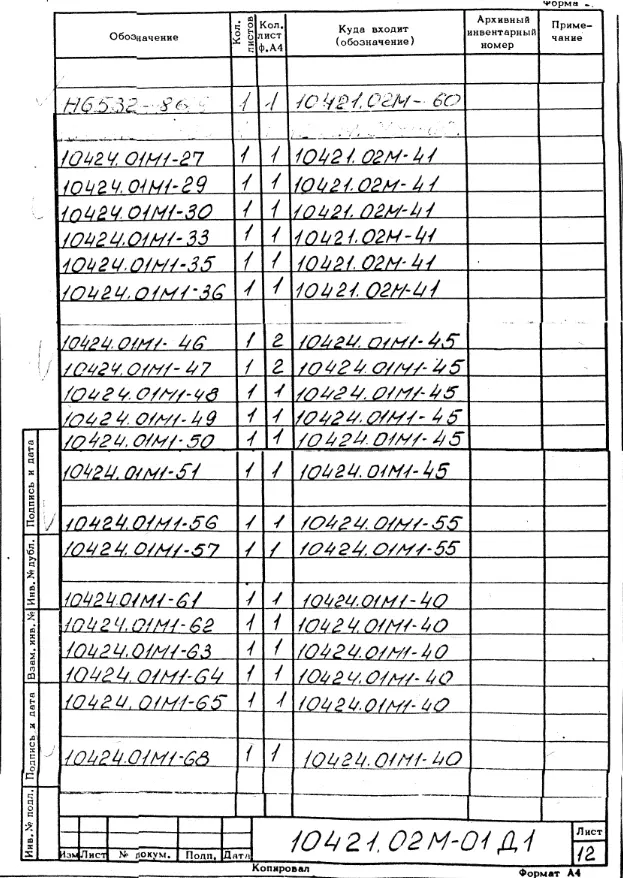 Форма
Обозначение Кол. листов Кол. лист ф.А4 Куда входит (обозначение) Архивный инвентарный номер Приме-чание
Н6532-86 1 1 10421.02М-60
10424.01М1-27 1 1 10421.02М-41
10424.01М1-29 1 1 10421.02М-41
10424.01М1-30 1 1 10421.02М-41
10424.01М1-33 1 1 10421.02М-41
10424.01М1-35 1 1 10421.02М-41
10424.01М1-36 1 1 10421.02М-41
10424.01М1-46 1 2 10424.01М1-45
10424.01М1-47 1 2 10424.01М1-45
10424.01М1-48 1 1 10424.01М1-45
10424.01М1-49 1 1 10424.01М1-45
10424.01М1-50 1 1 10424.01М1-45
10424.01М1-51 1 1 10424.01М1-45
10424.01М1-56 1 1 10424.01М1-55
10424.01М1-57 1 1 10424.01М1-55
10424.01М1-61 1 1 10424.01М1-40
10424.01М1-62 1 1 10424.01М1-40
10424.01М1-63 1 1 10424.01М1-40
10424.01М1-64 1 1 10424.01М1-40
10424.01М1-65 1 1 10424.01М1-40
10424.01М1-68 1 1 10424.01М1-40
Подпись и дата
Инв. № дубл.
Взам. инв. №
Подпись и дата
Инв. № подл.
10421.02М-01Д1
Лист
12
Изм Лист № докум. Подп. Дата
Копировал
Формат А4